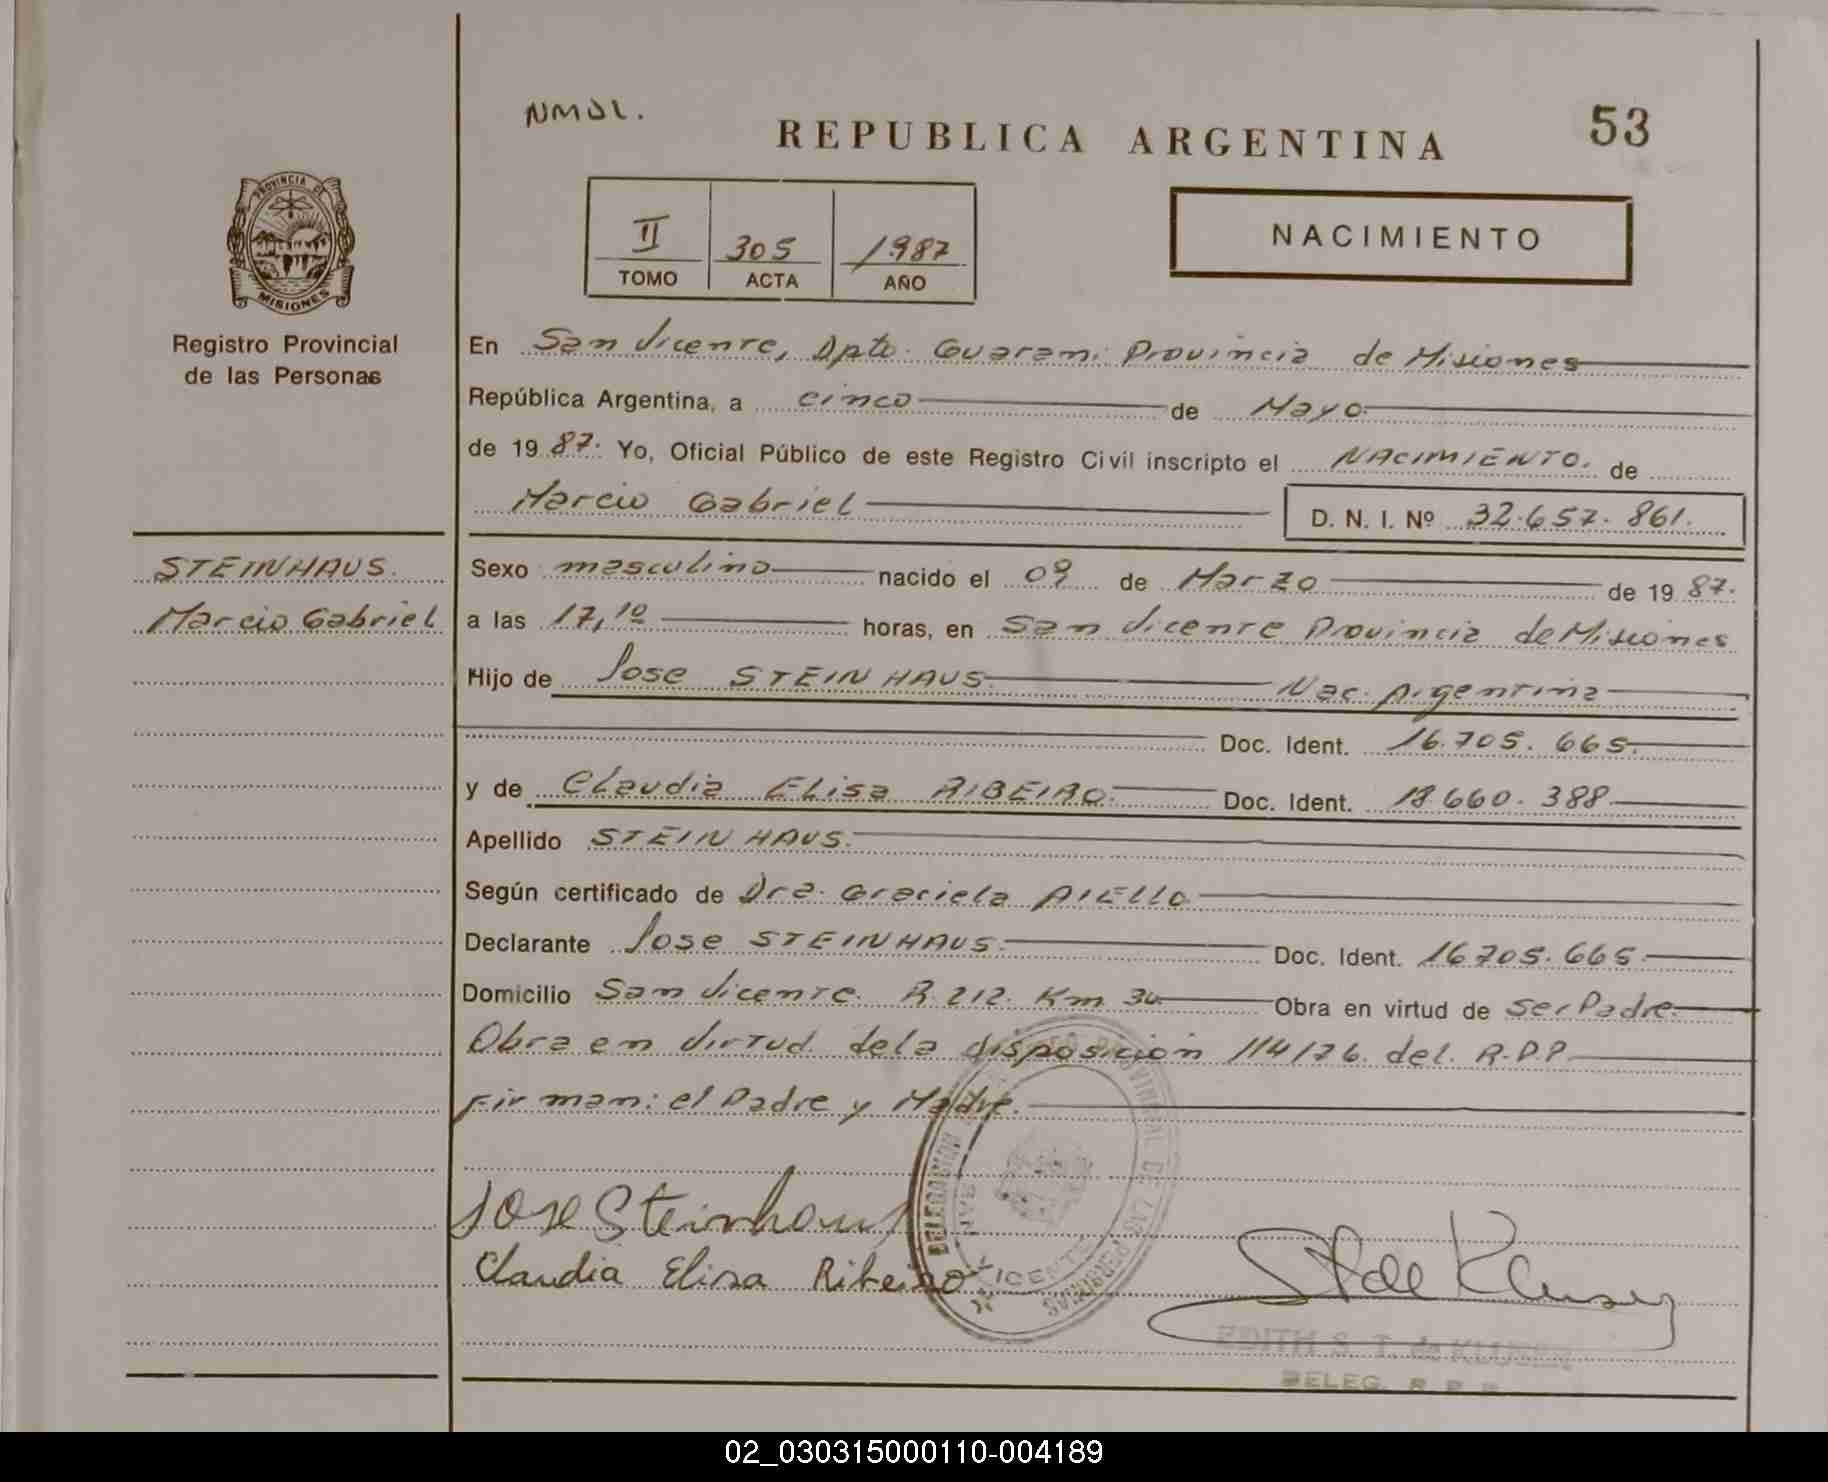 NMDL.
REPUBLICA ARGENTINA
53
PROVINCIA DE
MISIONES
Registro Provincial
de las Personas
II 305 1987
TOMO ACTA AÑO
NACIMIENTO
En San Vicente, Dpto. Guarani Provincia de Misiones
República Argentina, a cinco de Mayo
de 19 87. Yo, Oficial Público de este Registro Civil inscripto el NACIMIENTO. de
Marcio Gabriel D. N. I. Nº 32.657.861.
STEINHAUS.
Marcio Gabriel
Sexo masculino nacido el 09 de Marzo de 19 87.
a las 17,10 horas, en San Vicente Provincia de Misiones
Hijo de Jose STEINHAUS. Nac. Argentina
Doc. Ident. 16.705.665.
y de Claudia Elisa RIBEIRO. Doc. Ident. 18.660.388
Apellido STEINHAUS.
Según certificado de Dra. Graciela AIELLO
Declarante Jose STEINHAUS. Doc. Ident. 16705.665.
Domicilio San Vicente. R.212. Km 30. Obra en virtud de ser Padre.
Obra en virtud de la disposición 114/76. del. R.P.P.
Firman: el Padre y Madre.
Jose Steinhaus
Claudia Elisa Ribeiro
DELEGACION SAN VICENTE
PROVINCIAL DE LAS PERSONAS
EDITH S. T. de KLUSEN
DELEG. R. P. P.
02_030315000110-004189